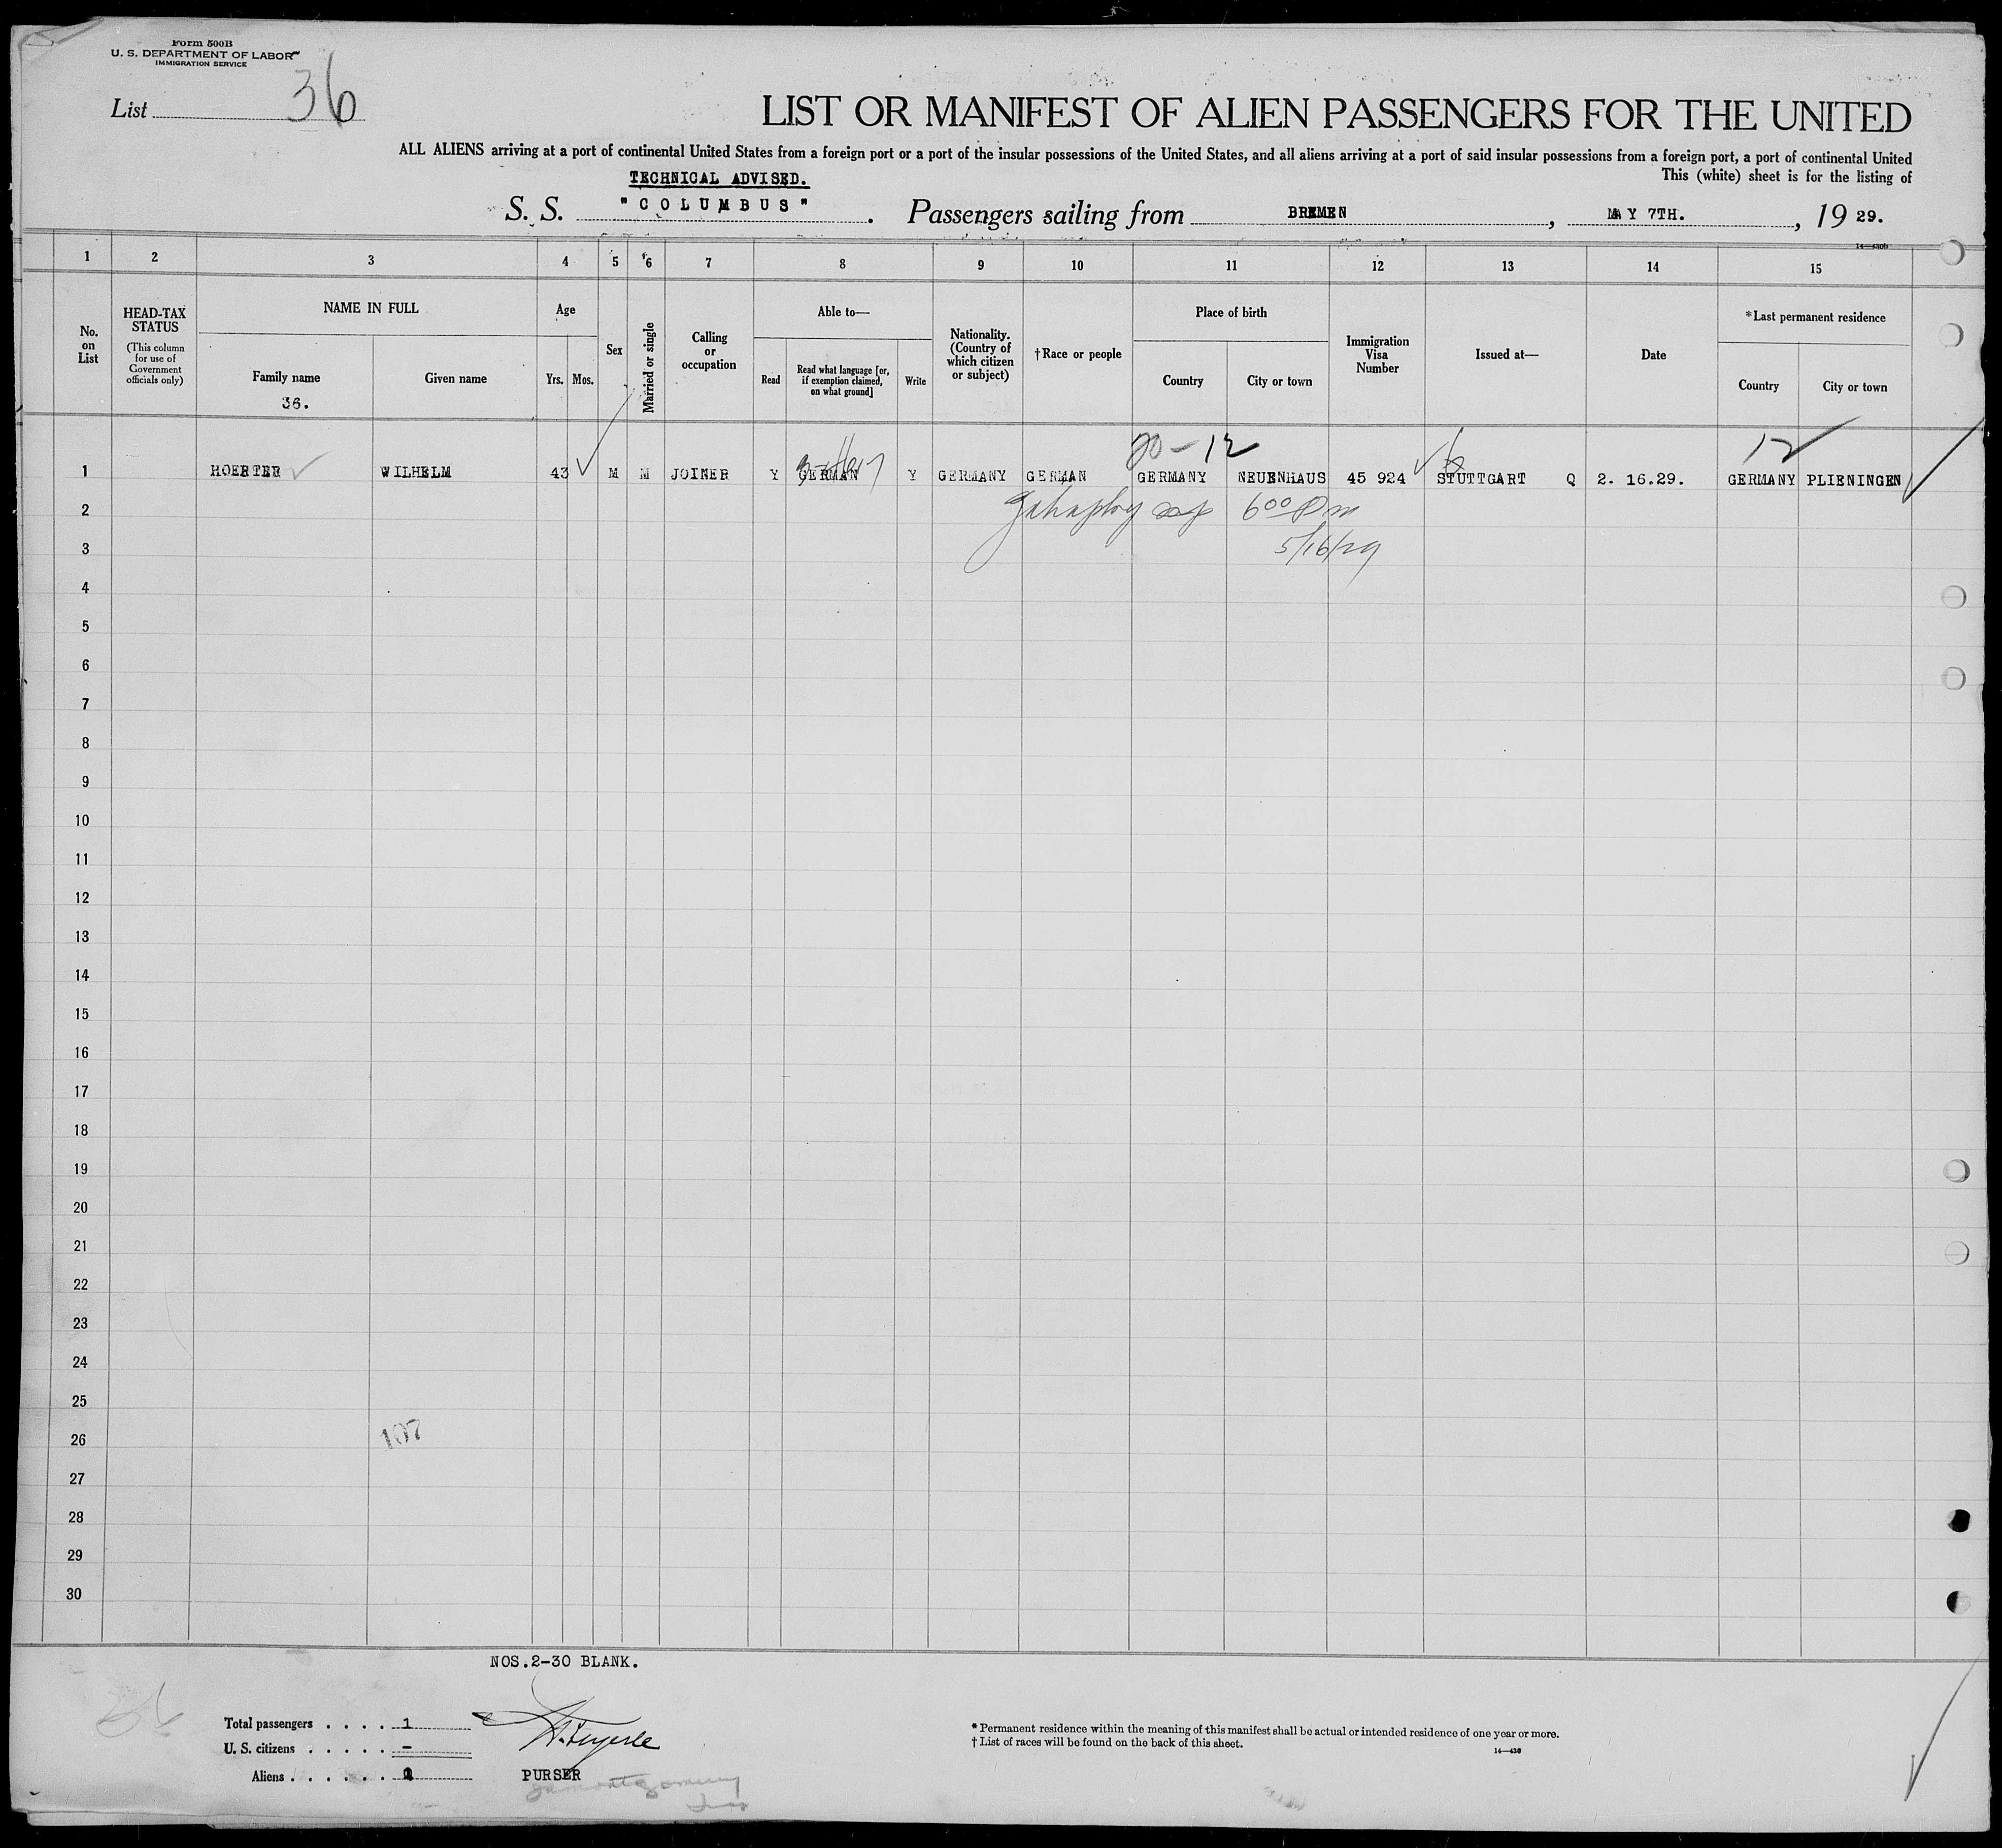 Form 500B
U. S. DEPARTMENT OF LABOR
IMMIGRATION SERVICE
List 36
LIST OR MANIFEST OF ALIEN PASSENGERS FOR THE UNITED
ALL ALIENS arriving at a port of continental United States from a foreign port or a port of the insular possessions of the United States, and all aliens arriving at a port of said insular possessions from a foreign port, a port of continental United
This (white) sheet is for the listing of
TECHNICAL ADVISED.
S. S. "COLUMBUS". Passengers sailing from BREMEN, MAY 7TH., 19 29.
1 2 3 4 5 6 7 8 9 10 11 12 13 14 15
No. on List
HEAD-TAX STATUS
(This column for use of Government officials only)
NAME IN FULL
Family name
36.
Given name
Age
Yrs. Mos.
Sex
Married or single
Calling or occupation
Able to—
Read
Read what language [or, if exemption claimed, on what ground]
Write
Nationality. (Country of which citizen or subject)
†Race or people
Place of birth
Country
City or town
Immigration Visa Number
Issued at—
Date
*Last permanent residence
Country
City or town
20-12
12
1 HOERTER WILHELM 43 M M JOINER Y GERMAN Y GERMANY GERMAN GERMANY NEUENHAUS 45 924 STUTTGART Q 2. 16.29. GERMANY PLIENINGEN
2 6 00 Pm
3 5/16/29
4
5
6
7
8
9
10
11
12
13
14
15
16
17
18
19
20
21
22
23
24
25
26 107
27
28
29
30
NOS.2-30 BLANK.
Total passengers . . . . 1
U. S. citizens . . . . . -
Aliens . . . . . .
PURSER
* Permanent residence within the meaning of this manifest shall be actual or intended residence of one year or more.
† List of races will be found on the back of this sheet.
14—430